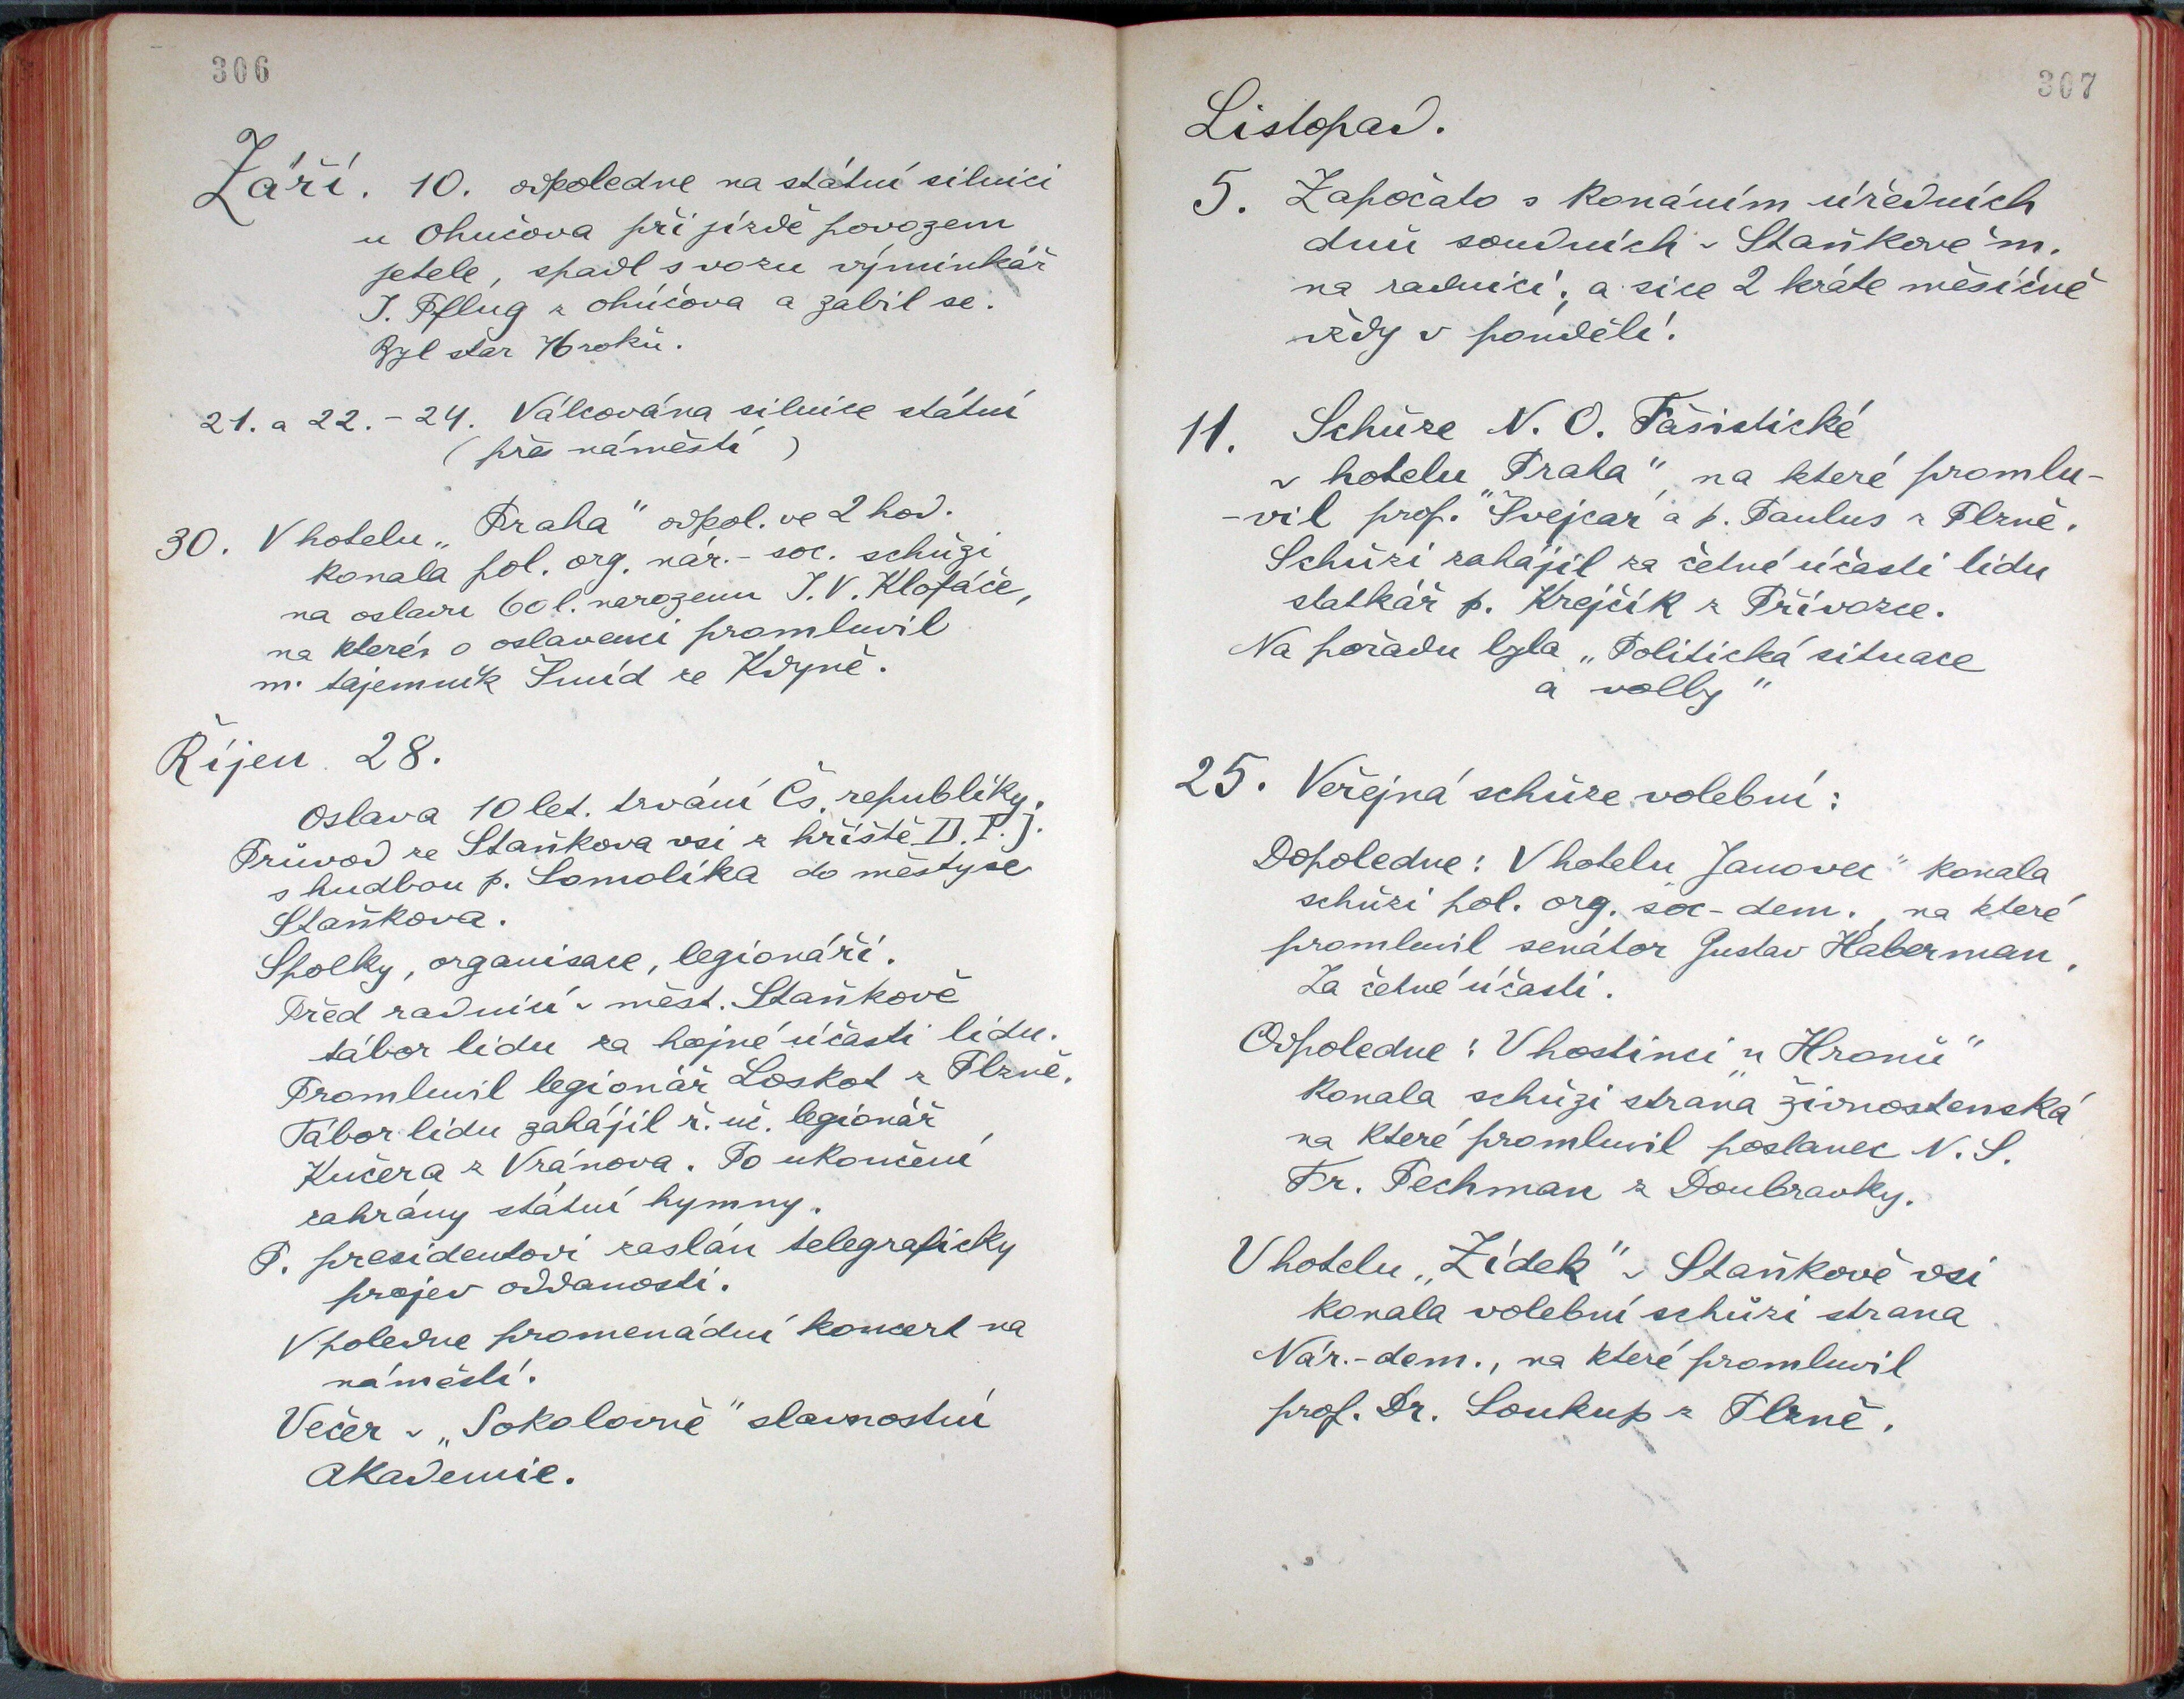 306
Září. 10. odpoledne na státní silnici
u Ohučova při jízdě povozem
jetele, spadl s vozu výminkář
J. Pflug z Ohúčova a zabil se.
Byl stár 76 roků.
21. a 22. - 24. Válcována silnice státní
(přes náměstí)
30. V hotelu „Praha" odpol. ve 2 hod.
konala pol. org. nár. - soc. schůzi
na oslavu 60 l. narozenin J. V. Klofáče,
na které o oslavenci promluvil
m. tajemník Šmíd ze Kdyně.
Říjen 28.
Oslava 10 let. trvání Čs. republiky.
Průvod ze Staňkova vsi z hřiště D.T.J.
s hudbou p. Somolíka do městyse
Staňkova.
Spolky, organisace, legionáři.
Před radnicí v měst. Staňkově
tábor lidu za hojné účasti lidu.
Promluvil legionář Loskot z Plzně.
Tábor lidu zahájil ř. uč. legionář
Kučera z Vránova. Po ukončení
zahrány státní hymny.
P. presidentovi zaslán telegraficky
projev oddanosti.
V poledne promenádní koncert na
náměstí.
Večer v „Sokolovně" slavnostní
Akademie.
307
Listopad.
5. Započato s konáním úředních
dnů soudních v Staňkově m.
na radnici; a sice 2 kráte měsíčně
vždy v pondělí.
11. Schůze N. O. Fašistické
v hotelu „Praha", na které promlu-
-vil prof. Švejcar a p. Paulus z Plzně.
Schůzi zahájil za četné účasti lidu
statkář p. Krejčík z Přívozce.
Na pořadu byla „Politická situace
a volby"
25. Veřejná schůze volební:
Dopoledne: V hotelu „Janovec" konala
schůzi pol. org. soc-dem., na které
promluvil senátor Gustav Haberman.
Za četné účasti.
Odpoledne: V hostinci „u Hronů"
konala schůzi strana živnostenská
na které promluvil poslanec N. S.
Fr. Pechman z Doubravky.
V hotelu „Žídek" v Staňkově vsi
konala volební schůzi strana
Nár.-dem., na které promluvil
prof. Dr. Soukup z Plzně.